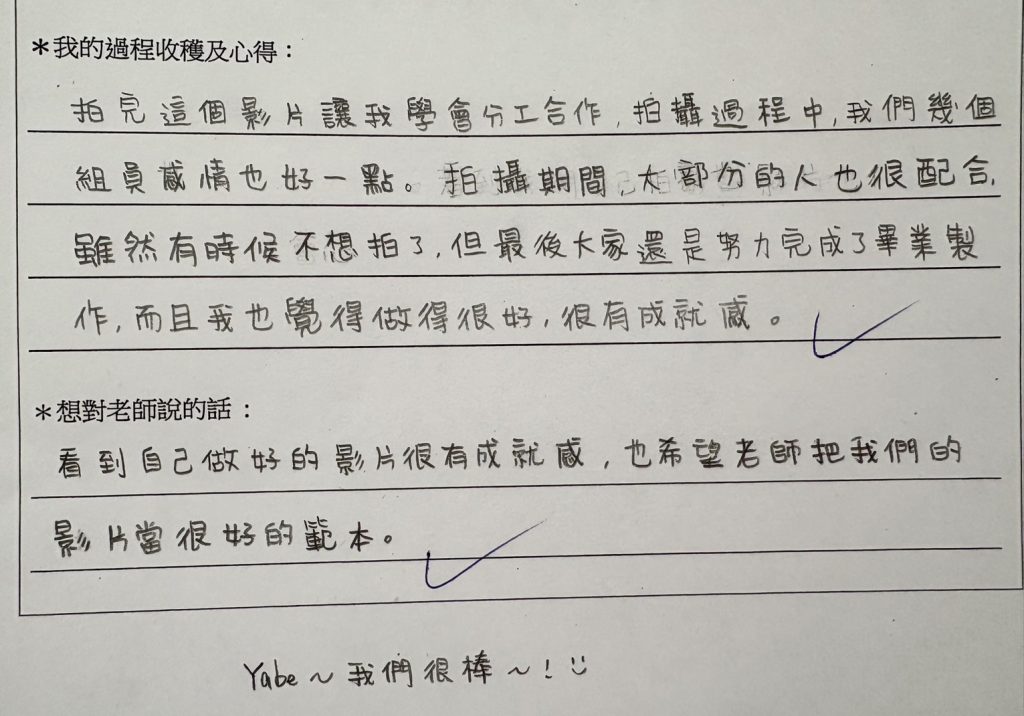 ＊我的過程收穫及心得：
拍完這個影片讓我學會分工合作,拍攝過程中,我們幾個
組員感情也好一點。拍攝期間,大部分的人也很配合,
雖然有時候不想拍了,但最後大家還是努力完成了畢業製
作,而且我也覺得做得很好,很有成就感。
＊想對老師說的話：
看到自己做好的影片很有成就感,也希望老師把我們的
影片當很好的範本。
Yabe～我們很棒～!